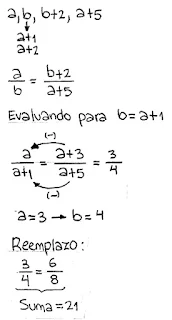 a, b, b+2, a+5
a+1
a+2
a/b = b+2/a+5
Evaluando para b=a+1
(-)
a/a+1 = a+3/a+5 = 3/4
(-)
a=3 → b=4
Reemplazo:
3/4 = 6/8
Suma=21